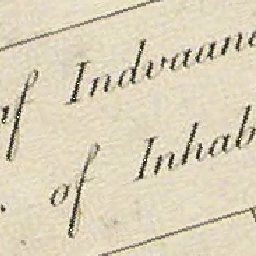 af Indvaane
of Inhab